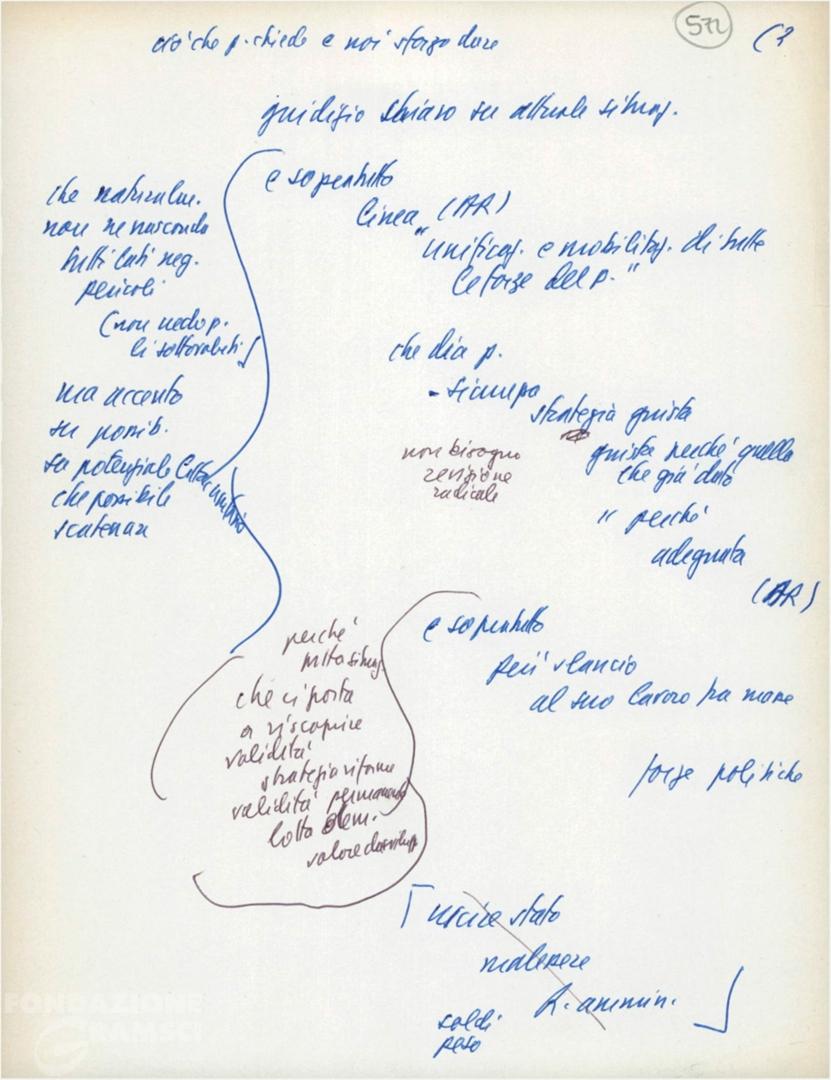 572
(7
ciò che p. chiede e noi sforzo dare
giudizio chiaro su attuale situaz.
e soprattutto
linea (AR)
"unificaz. e mobilitaz. di tutte
le forze del p."
che naturalm.
non nasconda
tutti lati neg.
pericoli
(non vedo p.
li sottovaluti)
ma accento
su possib.
su potenziale
che possibile
scatenare
che dia p.
- sicurezza
strategia giusta
giusta perché quella
che già dato
" perché
adeguata
(AR)
non bisogno
revisione
radicale
e soprattutto
più slancio
al suo lavoro tra masse
forze politiche
perché
situaz.
che ci porta
a riscoprire
validità
strategia riforme
validità permanente
lotta dem.
valore
[uscire stato
malessere
R. ammin.]
soldi
peso
FONDAZIONE
GRAMSCI